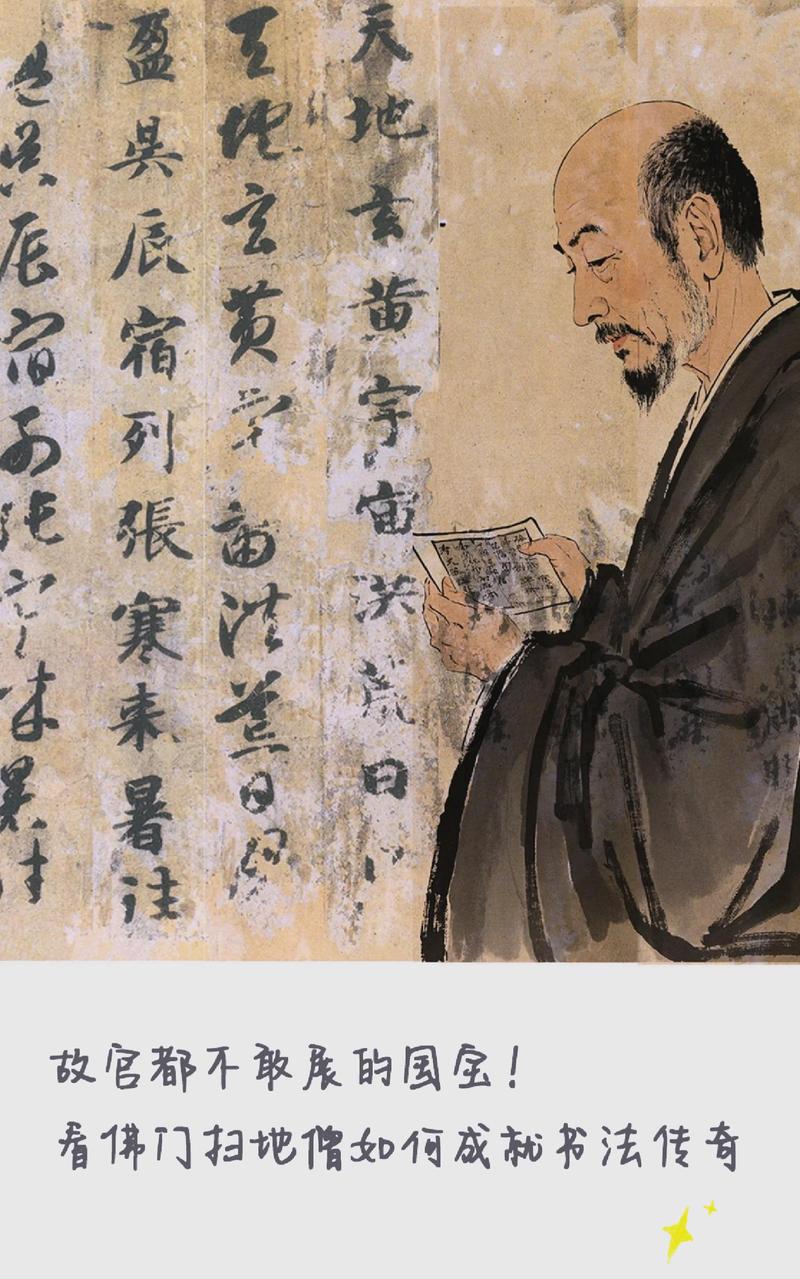 天地玄黄宇宙洪荒日
天地玄黄宇宙洪荒日月
盈昃辰宿列張寒来暑往
盈昃辰宿列张寒来暑往
故宫都不敢展的国宝！
看佛门扫地僧如何成就书法传奇